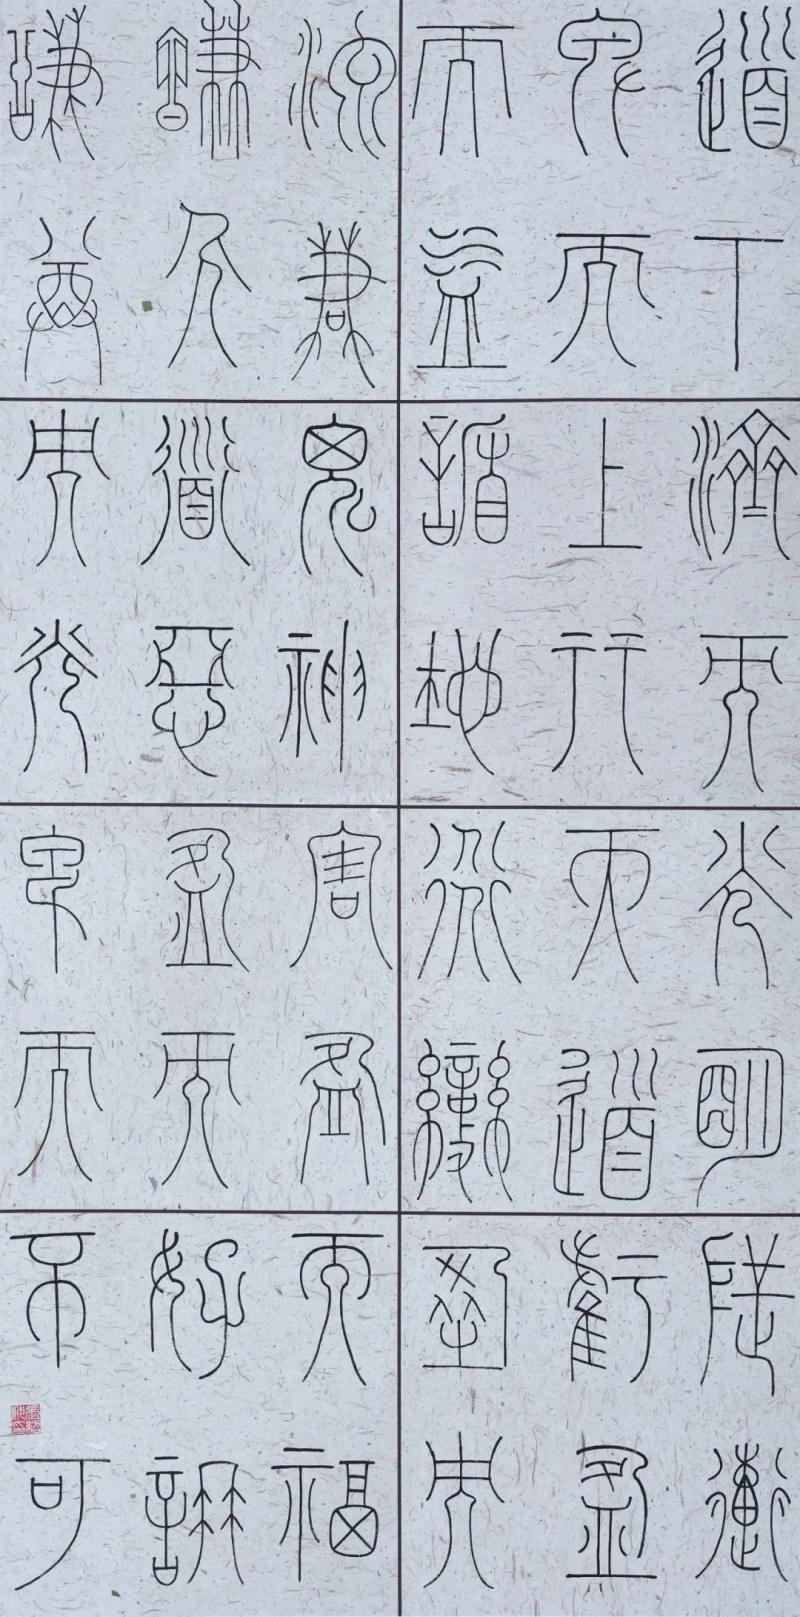 道下濟而光明地道
卑而上行天道虧盈
而益謙地道變盈而
流謙鬼神害盈而福
謙人道惡盈而好謙
謙尊而光卑而不可